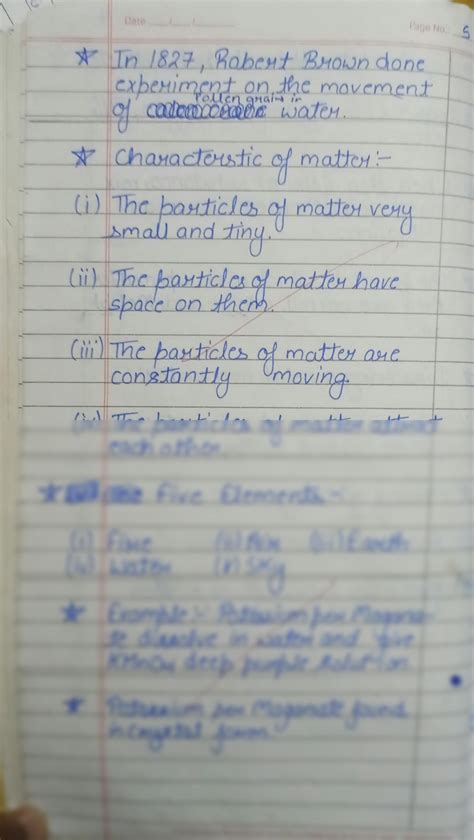 Date
Page No. 5
☆ In 1827, Robert Brown done
experiment on the movement
pollen grains in
of water.
☆ Characterstic of matter:-
(i) The particles of matter very
small and tiny.
(ii) The particles of matter have
space on them.
(iii) The particles of matter are
constantly moving.
(iv) The particles of matter attract
each other.
☆ Five Elements:-
(i) Fire (ii) Air (iii) Earth
(iv) Water (v) Sky
☆ Example:- Potassium per
dissolve in water and
KMnO4 deep purple solution
☆ Potassium per Maganate found
in crystal form.